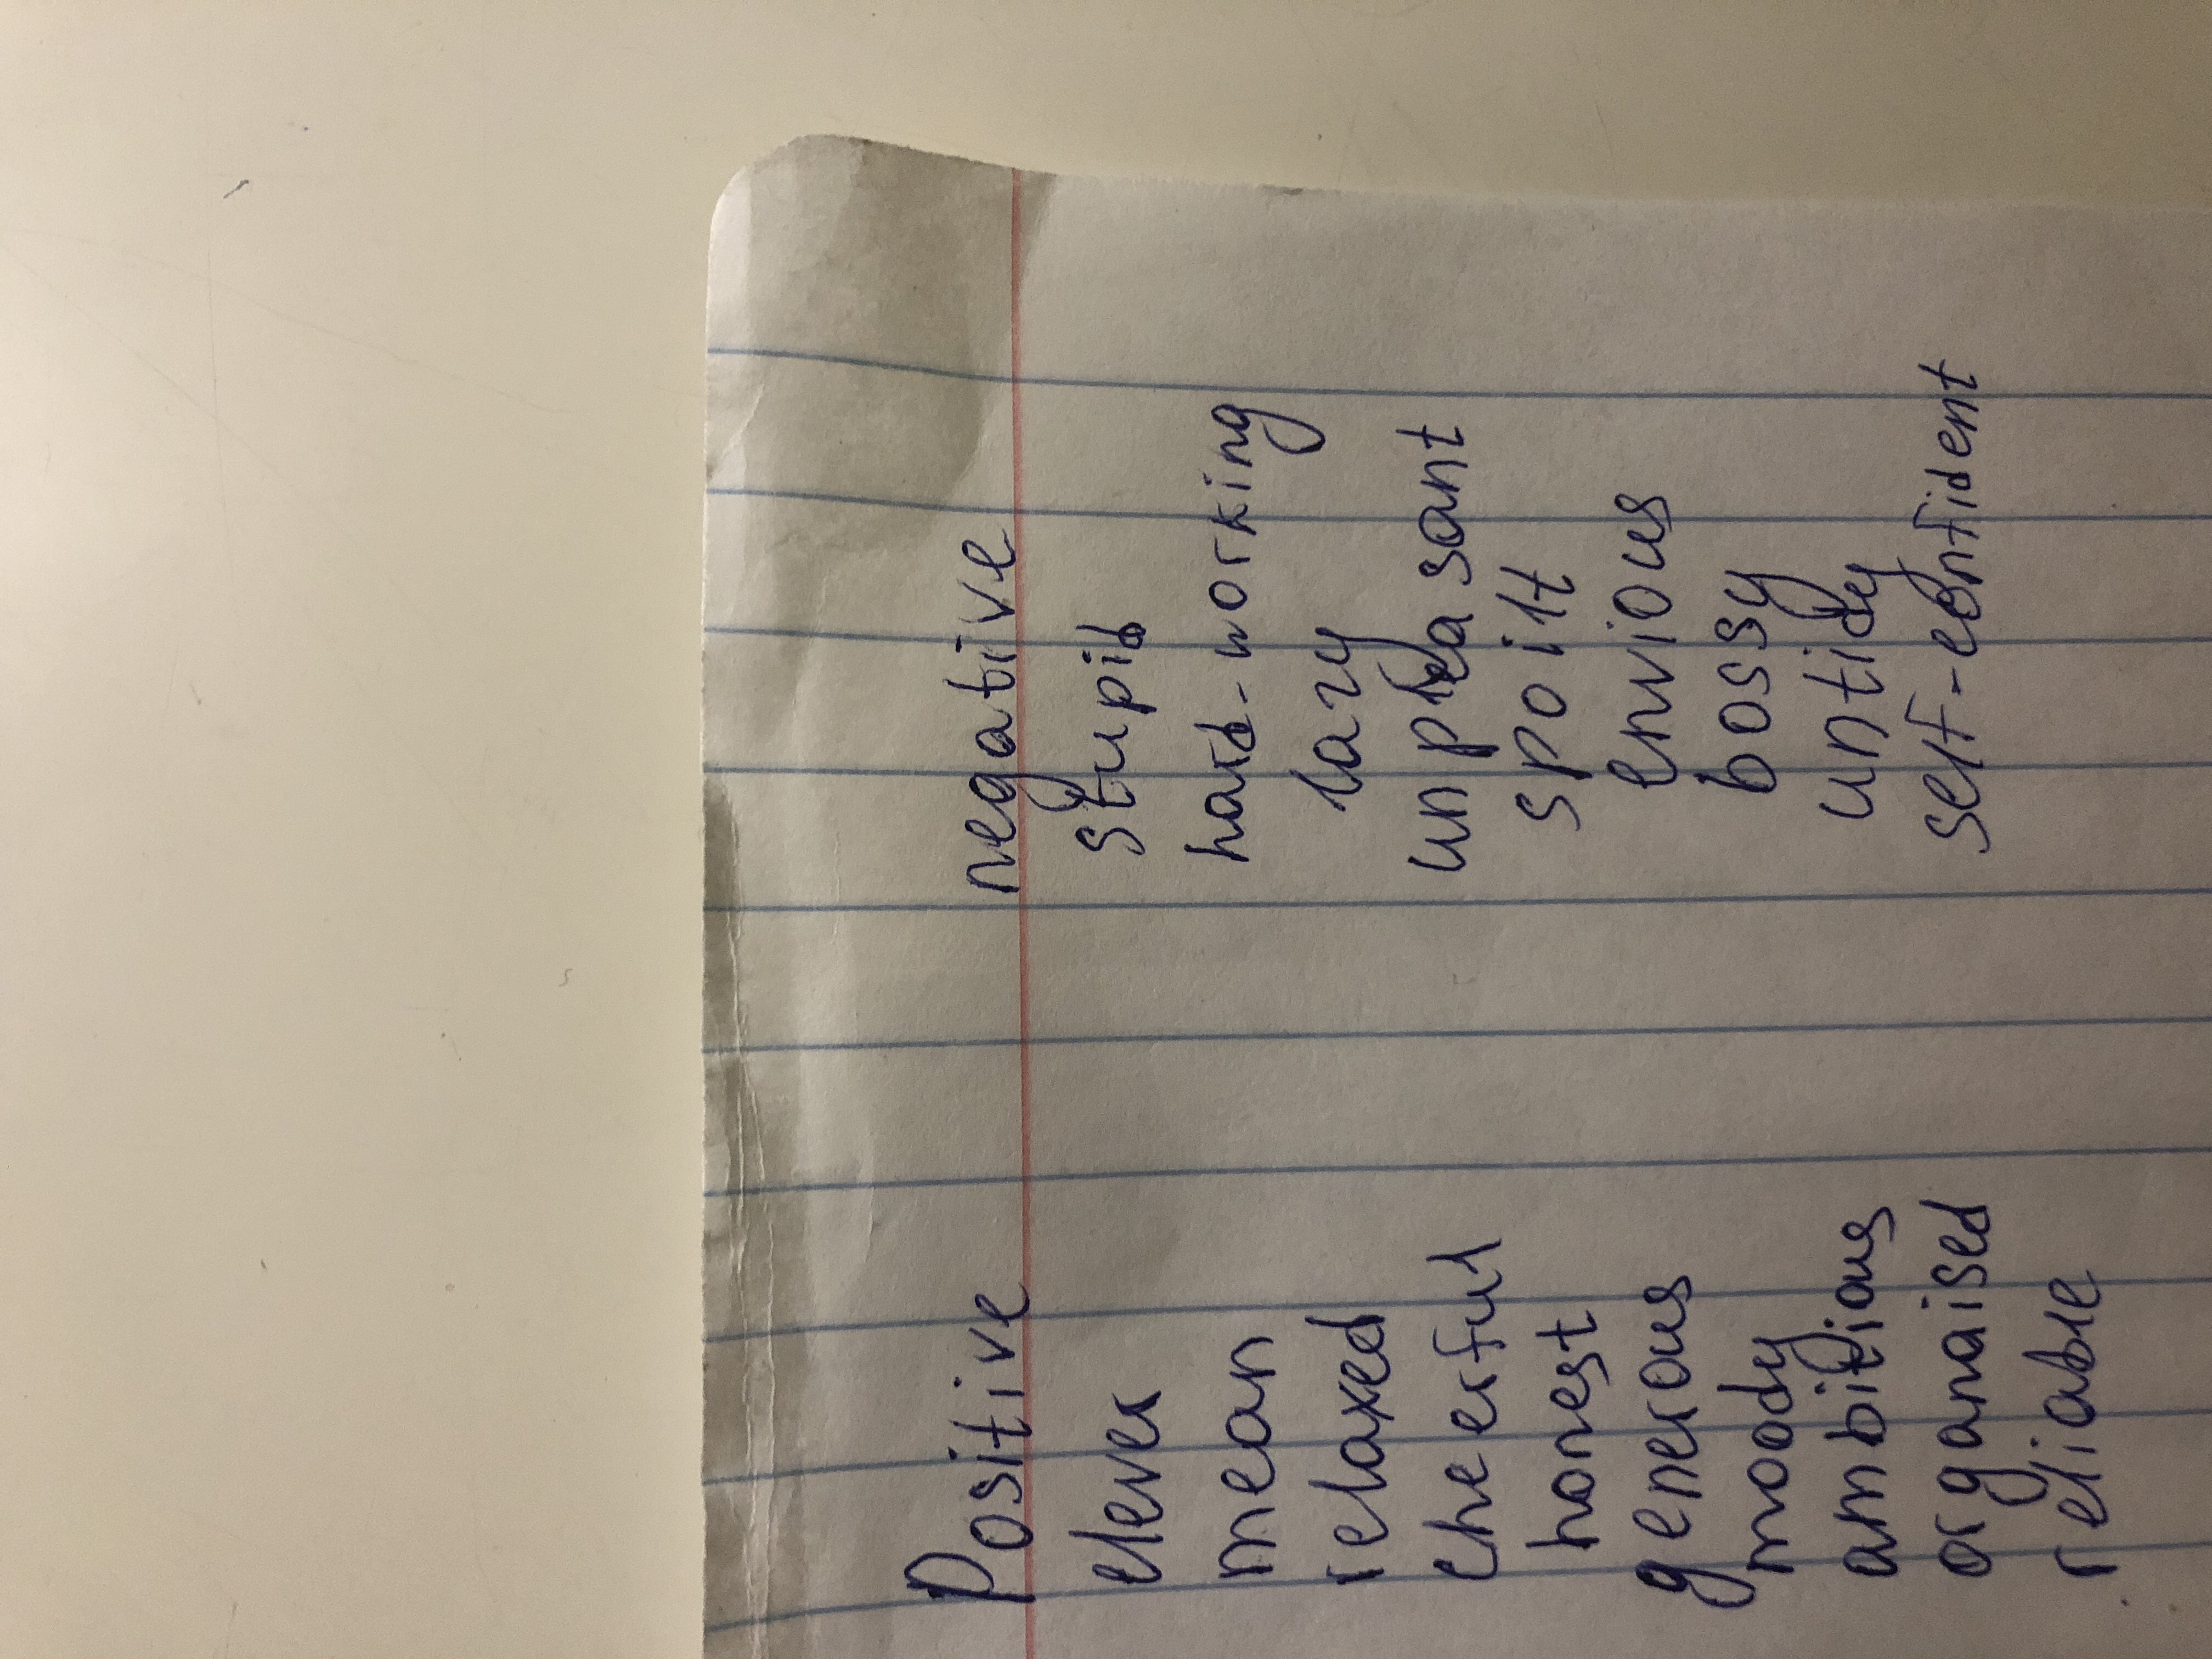 Positive negative
clever stupid
mean hard-working
relaxed lazy
cheerful unpleasant
honest spoilt
generous envious
moody bossy
ambitious untidy
organaised self-confident
reliable